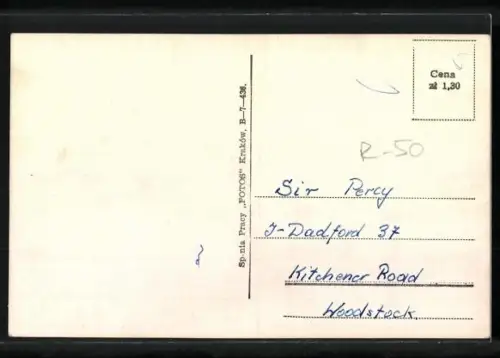 Cena
zł 1,30
R-50
Sp-nia Pracy „FOTOS" Kraków, B—7—436.
Sir Percy
J-Dadford 37
Kitchener Road
Woodstock.